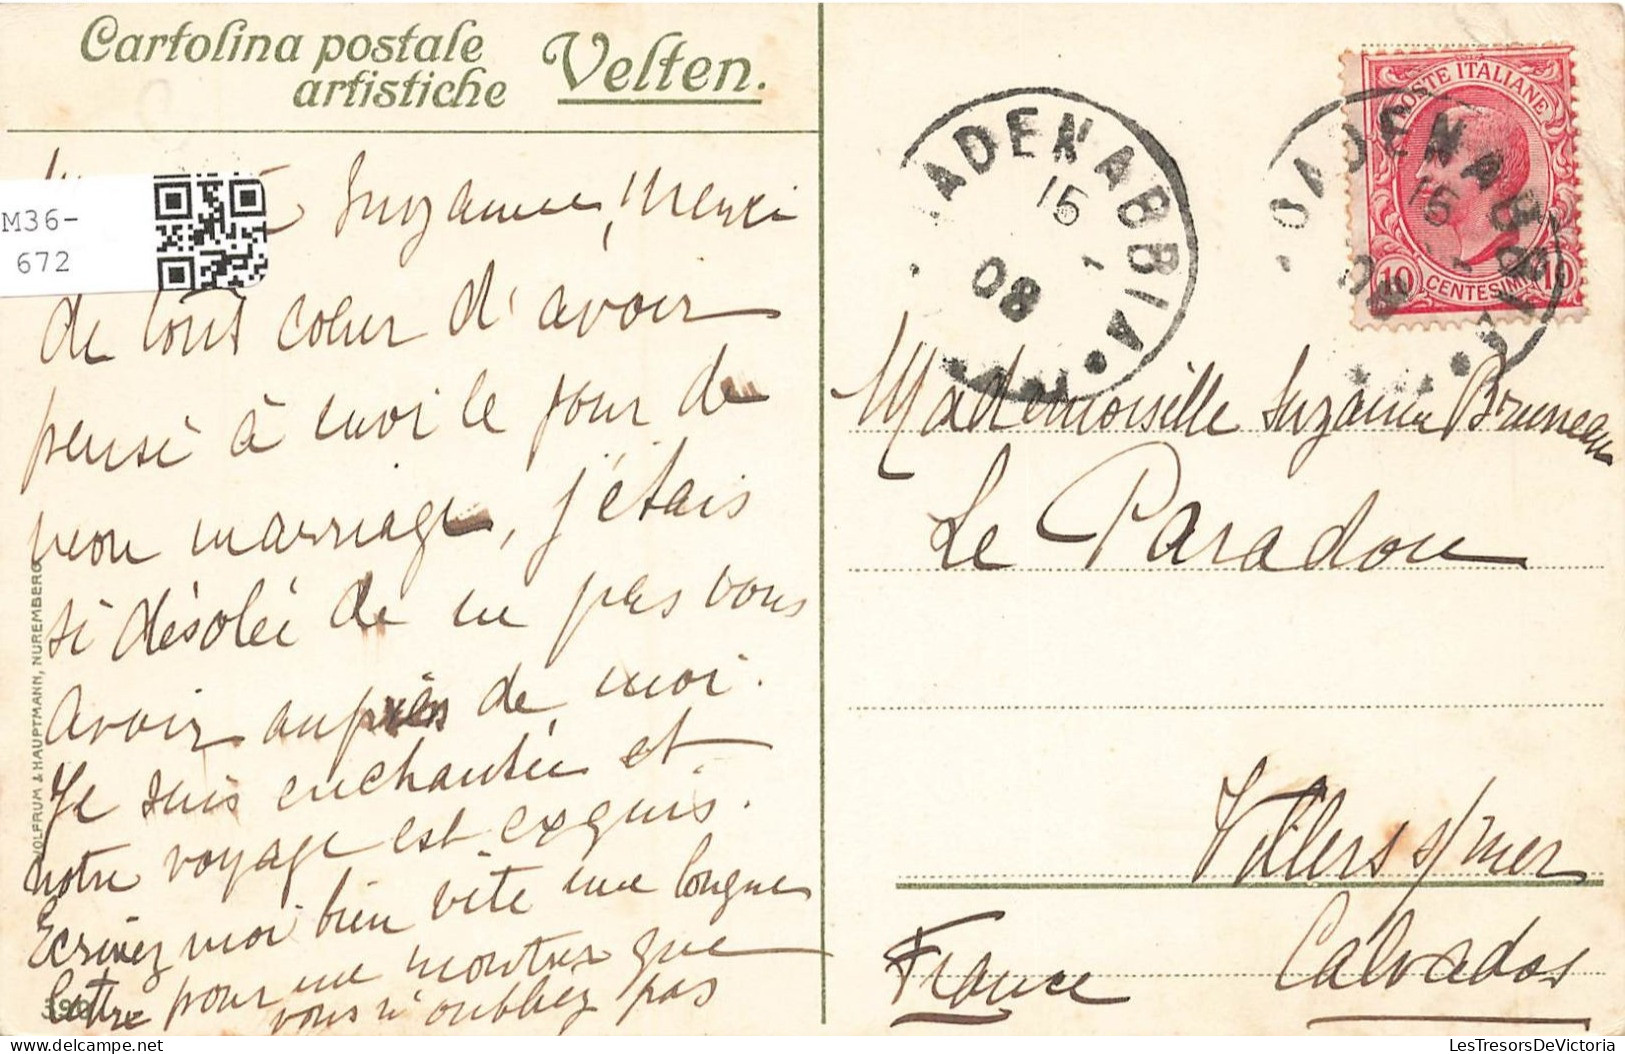 Cartolina postale
artistiche
Velten.
M36-
672
Suzanne, merci
de tout coeur d'avoir
pensé à moi le jour de
mon marriage, j'étais
si désolée de ne pas vous
avoir auprès de moi.
Je suis enchantée et
notre voyage est exquis.
Ecrivez moi bien vite une longue
lettre pour me montrer que
vous n'oubliez pas
WOLFRUM & HAUPTMANN, NUREMBERG
CADENABBIA
15
08
CADENABBIA
15
08
POSTE ITALIANE
10 CENTESIMI 10
Mademoiselle Suzanne Bruneau
Le Paradou
Villers s/mer
Calvados
France
LesTresorsDeVictoria